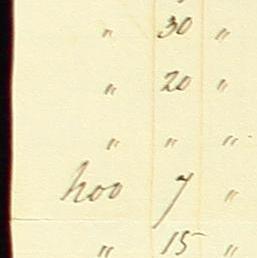 " 30 "
" 20 "
" " "
hoo 7 "
" 15 "